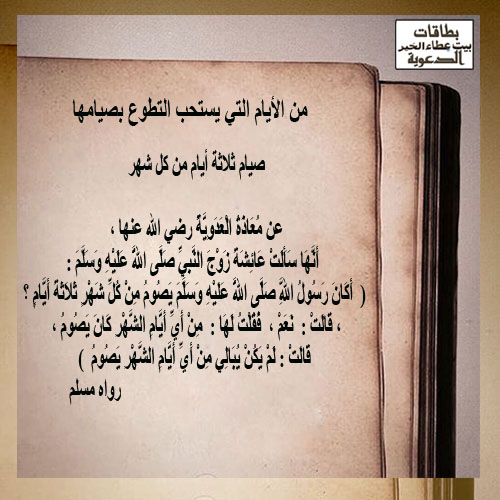 بطاقات
بيت عطاء الخير
الدعوية
من الأيام التي يستحب التطوع بصيامها
صيام ثلاثة أيام من كل شهر
عن مُعَاذَةُ الْعَدَوِيَّة رضي الله عنها ،
أَنَّهَا سَأَلَتْ عَائِشَةَ زَوْجَ النَّبِيِّ صَلَّى اللَّهُ عَلَيْهِ وَسَلَّمَ :
( أَكَانَ رَسُولُ اللَّهِ صَلَّى اللَّهُ عَلَيْهِ وَسَلَّمَ يَصُومُ مِنْ كُلِّ شَهْرٍ ثَلَاثَةَ أَيَّامٍ ؟
، قَالَتْ : نَعَمْ ، فَقُلْتُ لَهَا : مِنْ أَيِّ أَيَّامِ الشَّهْرِ كَانَ يَصُومُ ،
قَالَتْ : لَمْ يَكُنْ يُبَالِي مِنْ أَيِّ أَيَّامِ الشَّهْرِ يَصُومُ )
رواه مسلم